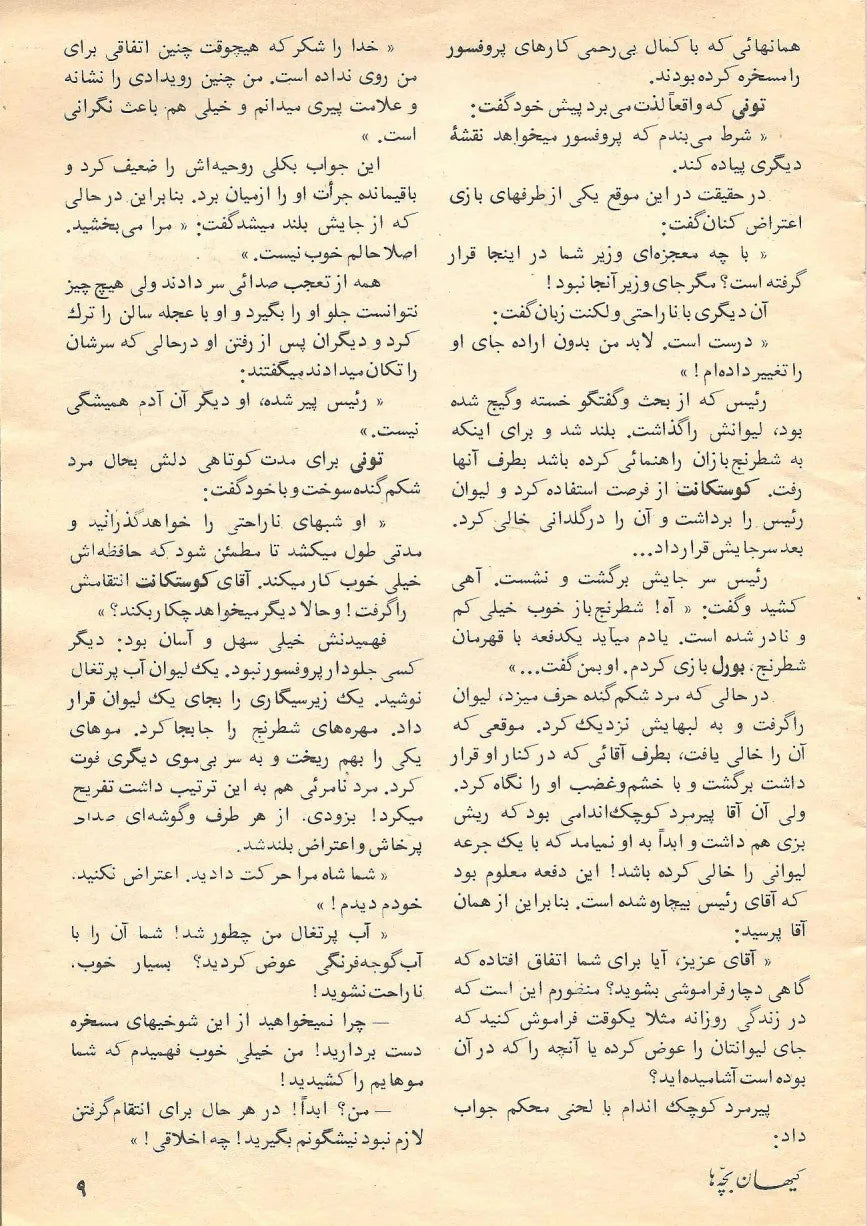 همانهائی که با کمال بی‌رحمی کارهای پروفسور
را مسخره کرده بودند.
تونی که واقعاً لذت می‌برد پیش خود گفت:
« شرط می‌بندم که پروفسور میخواهد نقشهٔ
دیگری پیاده کند.
در حقیقت در این موقع یکی از طرفهای بازی
اعتراض کنان گفت:
« با چه معجزه‌ای وزیر شما در اینجا قرار
گرفته است؟ مگر جای وزیر آنجا نبود!
آن دیگری با ناراحتی ولکنت زبان گفت:
« درست است. لابد من بدون اراده جای او
را تغییر داده‌ام! »
رئیس که از بحث وگفتگو خسته وگیج شده
بود، لیوانش راگذاشت. بلند شد و برای اینکه
به شطرنج‌بازان راهنمائی کرده باشد بطرف آنها
رفت. کوستکانت از فرصت استفاده کرد و لیوان
رئیس را برداشت و آن را درگلدانی خالی کرد.
بعد سرجایش قرار داد...
رئیس سر جایش برگشت و نشست. آهی
کشید وگفت: « آه! شطرنج‌باز خوب خیلی کم
و نادر شده است. یادم میآید یکدفعه با قهرمان
شطرنج، بورل بازی کردم. او بمن گفت...»
در حالی که مرد شکم‌گنده حرف میزد، لیوان
راگرفت و به لبهایش نزدیک کرد. موقعی که
آن را خالی یافت، بطرف آقائی که در کنار او قرار
داشت برگشت و با خشم‌وغضب او را نگاه کرد.
ولی آن آقا پیرمرد کوچک‌اندامی بود که ریش
بزی هم داشت و ابداً به او نمیامد که با یک جرعه
لیوانی را خالی کرده باشد! این دفعه معلوم بود
که آقای رئیس بیچاره شده است. بنابراین از همان
آقا پرسید:
« آقای عزیز، آیا برای شما اتفاق افتاده که
گاهی دچار فراموشی بشوید؟ منظورم این است که
در زندگی روزانه مثلا یکوقت فراموش کنید که
جای لیوانتان را عوض کرده یا آنچه را که در آن
بوده است آشامیده‌اید؟
پیرمرد کوچک اندام با لحنی محکم جواب
داد:
« خدا را شکر که هیچوقت چنین اتفاقی برای
من روی نداده است. من چنین رویدادی را نشانه
و علامت پیری میدانم و خیلی هم باعث نگرانی
است. »
این جواب بکلی روحیه‌اش را ضعیف کرد و
باقیمانده جرأت او را ازمیان برد. بنابراین در حالی
که از جایش بلند میشد گفت: « مرا می‌بخشید.
اصلا حالم خوب نیست. »
همه از تعجب صدائی سر دادند ولی هیچ چیز
نتوانست جلو او را بگیرد و او با عجله سالن را ترك
کرد و دیگران پس از رفتن او درحالی که سرشان
را تکان میدادند میگفتند:
« رئیس پیر شده، او دیگر آن آدم همیشگی
نیست.»
تونی برای مدت کوتاهی دلش بحال مرد
شکم‌گنده سوخت و با خود گفت:
« او شبهای ناراحتی را خواهدگذرانید و
مدتی طول میکشد تا مطمئن شود که حافظه‌اش
خیلی خوب کار میکند. آقای کوستکانت انتقامش
راگرفت! وحالا دیگر میخواهد چکار بکند؟ »
فهمیدنش خیلی سهل و آسان بود: دیگر
کسی جلودار پروفسور نبود. یک لیوان آب پرتغال
نوشید. یک زیرسیگاری را بجای یک لیوان قرار
داد. مهره‌های شطرنج را جابجا کرد. موهای
یکی را بهم ریخت و به سر بی‌موی دیگری فوت
کرد. مرد نامرئی هم به این ترتیب داشت تفریح
میکرد! بزودی. از هر طرف وگوشه‌ای صدای
پرخاش و اعتراض بلند شد.
« شما شاه مرا حرکت دادید. اعتراض نکنید.
خودم دیدم! »
« آب پرتغال من چطور شد! شما آن را با
آب‌گوجه‌فرنگی عوض کردید؟ بسیار خوب.
ناراحت نشوید!
— چرا نمیخواهید از این شوخیهای مسخره
دست بردارید! من خیلی خوب فهمیدم که شما
موهایم را کشیدید!
— من؟ ابداً! در هر حال برای انتقام‌گرفتن
لازم نبود نیشگونم بگیرید! چه اخلاقی! »
کیهان بچّه‌ها
۹